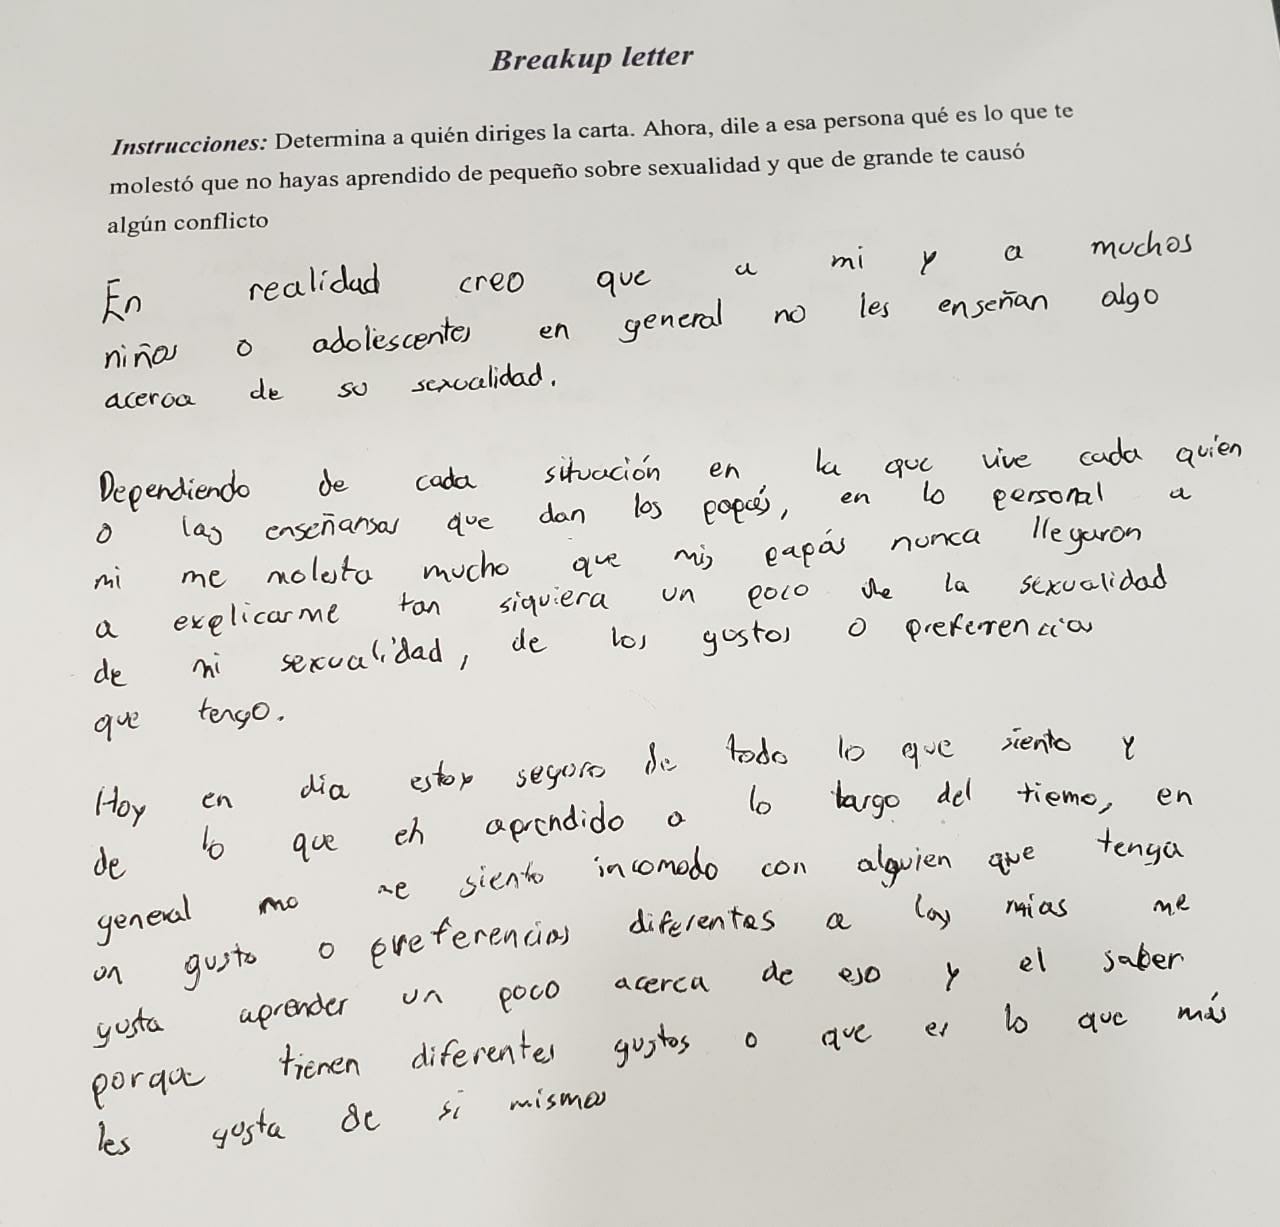 Breakup letter
Instrucciones: Determina a quién diriges la carta. Ahora, dile a esa persona qué es lo que te
molestó que no hayas aprendido de pequeño sobre sexualidad y que de grande te causó
algún conflicto
En realidad creo que a mi y a muchos
niños o adolescentes en general no les enseñan algo
acerca de su sexualidad.
Dependiendo de cada situación en la que vive cada quien
o las enseñansas que dan los papás, en lo personal a
mi me molesta mucho que mis papás nunca llegaron
a explicarme tan siquiera un poco de la sexualidad
de mi sexualidad, de los gustos o preferencias
que tengo.
Hoy en dia estoy seguro de todo lo que siento y
de lo que eh aprendido a lo largo del tiemo, en
general no me siento incomodo con alguien que tenga
un gusto o preferencias diferentes a las mias me
gusta aprender un poco acerca de eso y el saber
porque tienen diferentes gustos o que es lo que más
les gusta de si mismos